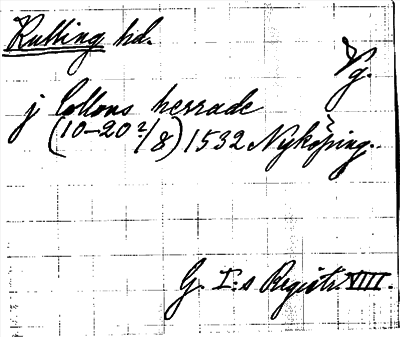 Kulling hd.
Vg.
j Collons herrade
(10-20?/8) 1532 Nyköping.
G. I:s Registr. VIII.